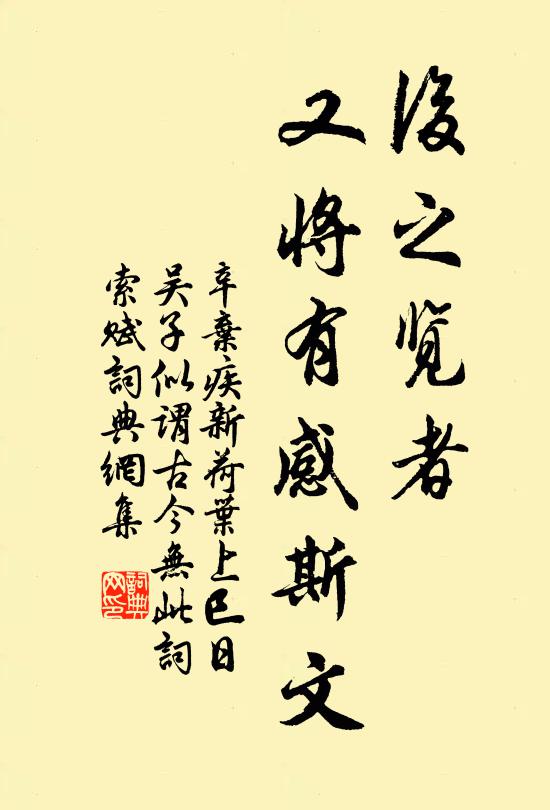 後之览者
又将有感斯文
辛棄疾新荷葉上巳日
吴子似谓古今無此詞
索赋詞典網集
詞典
网印